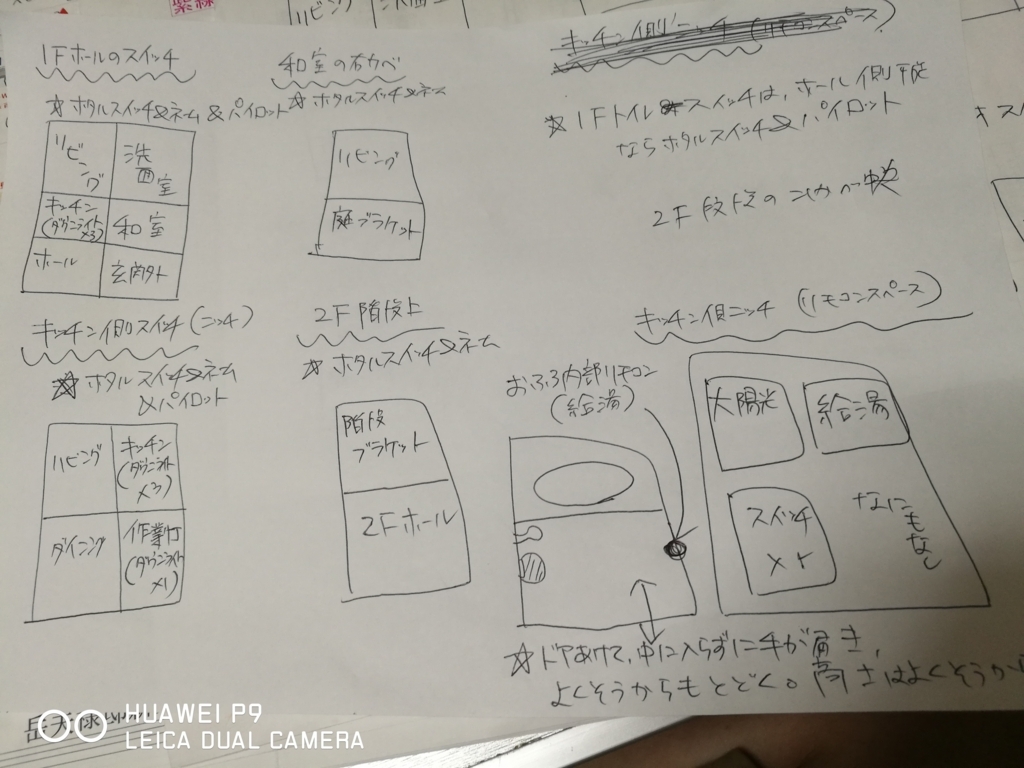 1Fホールのスイッチ
☆ホタルスイッチ&ネーム&パイロット
リビング
洗面室
キッチン
(ダウンライト
和室
ホール
玄関外
和室の右カベ
☆ホタルスイッチ&ネーム
リビング
庭ブラケット
キッチン側ニッチ(リモコンスペース)
☆1Fトイレスイッチは、ホール側
ならホタルスイッチ&パイロット
2F段
キッチン側スイッチ(ニッチ)
☆ホタルスイッチ&ネーム
&パイロット
リビング
キッチン
(ダウンライト
ダイニング
作業灯
(ダウンライト
2F階段上
☆ホタルスイッチ&ネーム
階段
ブラケット
2Fホール
キッチン側ニッチ(リモコンスペース)
おふろ内部リモコン
(給湯)
太陽光
給湯
スイッチ
なにもなし
☆ドアあけて、中に入らずに手が届き、
よくそうからもとどく。高さはよくそうか
HUAWEI P9
LEICA DUAL CAMERA